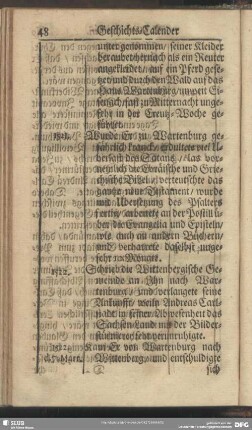 48 Geschichts-Calender
unter genommen / seiner Kleider
beraubet / endlich als ein Reuter
angekleidet / auf ein Pferd gese-
tzet / und durch den Wald auf das
Hauß Wartenburg / umb
zu Mitternacht unge-
fehr in der Creutz-Woche ge-
führet.
1521. Wurde Er zu Wartenburg ge-
fährlich kranck / erduldete viel U-
berlast des Satans / las vor-
nemlich die Ebräische und Grie-
chische Bibel / verteutschte das
neue Testament / wurde
mit Ubersetzung des Psalters
fertig / arbeitete an der Postill ü-
ber die Evangelia und Episteln /
wie auch an andern Büchern
und verharrete daselbst unge-
fehr 10. Monat.
1522. Schrieb die Wittenbergische Ge-
meinde an Ihn nach War-
tenburg / und verlangete seine
Ankunfft / weil Andreas Carl-
stadt in seiner Abwesenheit das
Sachsen-Land mit der Bilder-
stürmerey sehr verunruhigte.
1522. Kam Er von Wartenburg nach
Wittenberg / und entschuldigte
sich